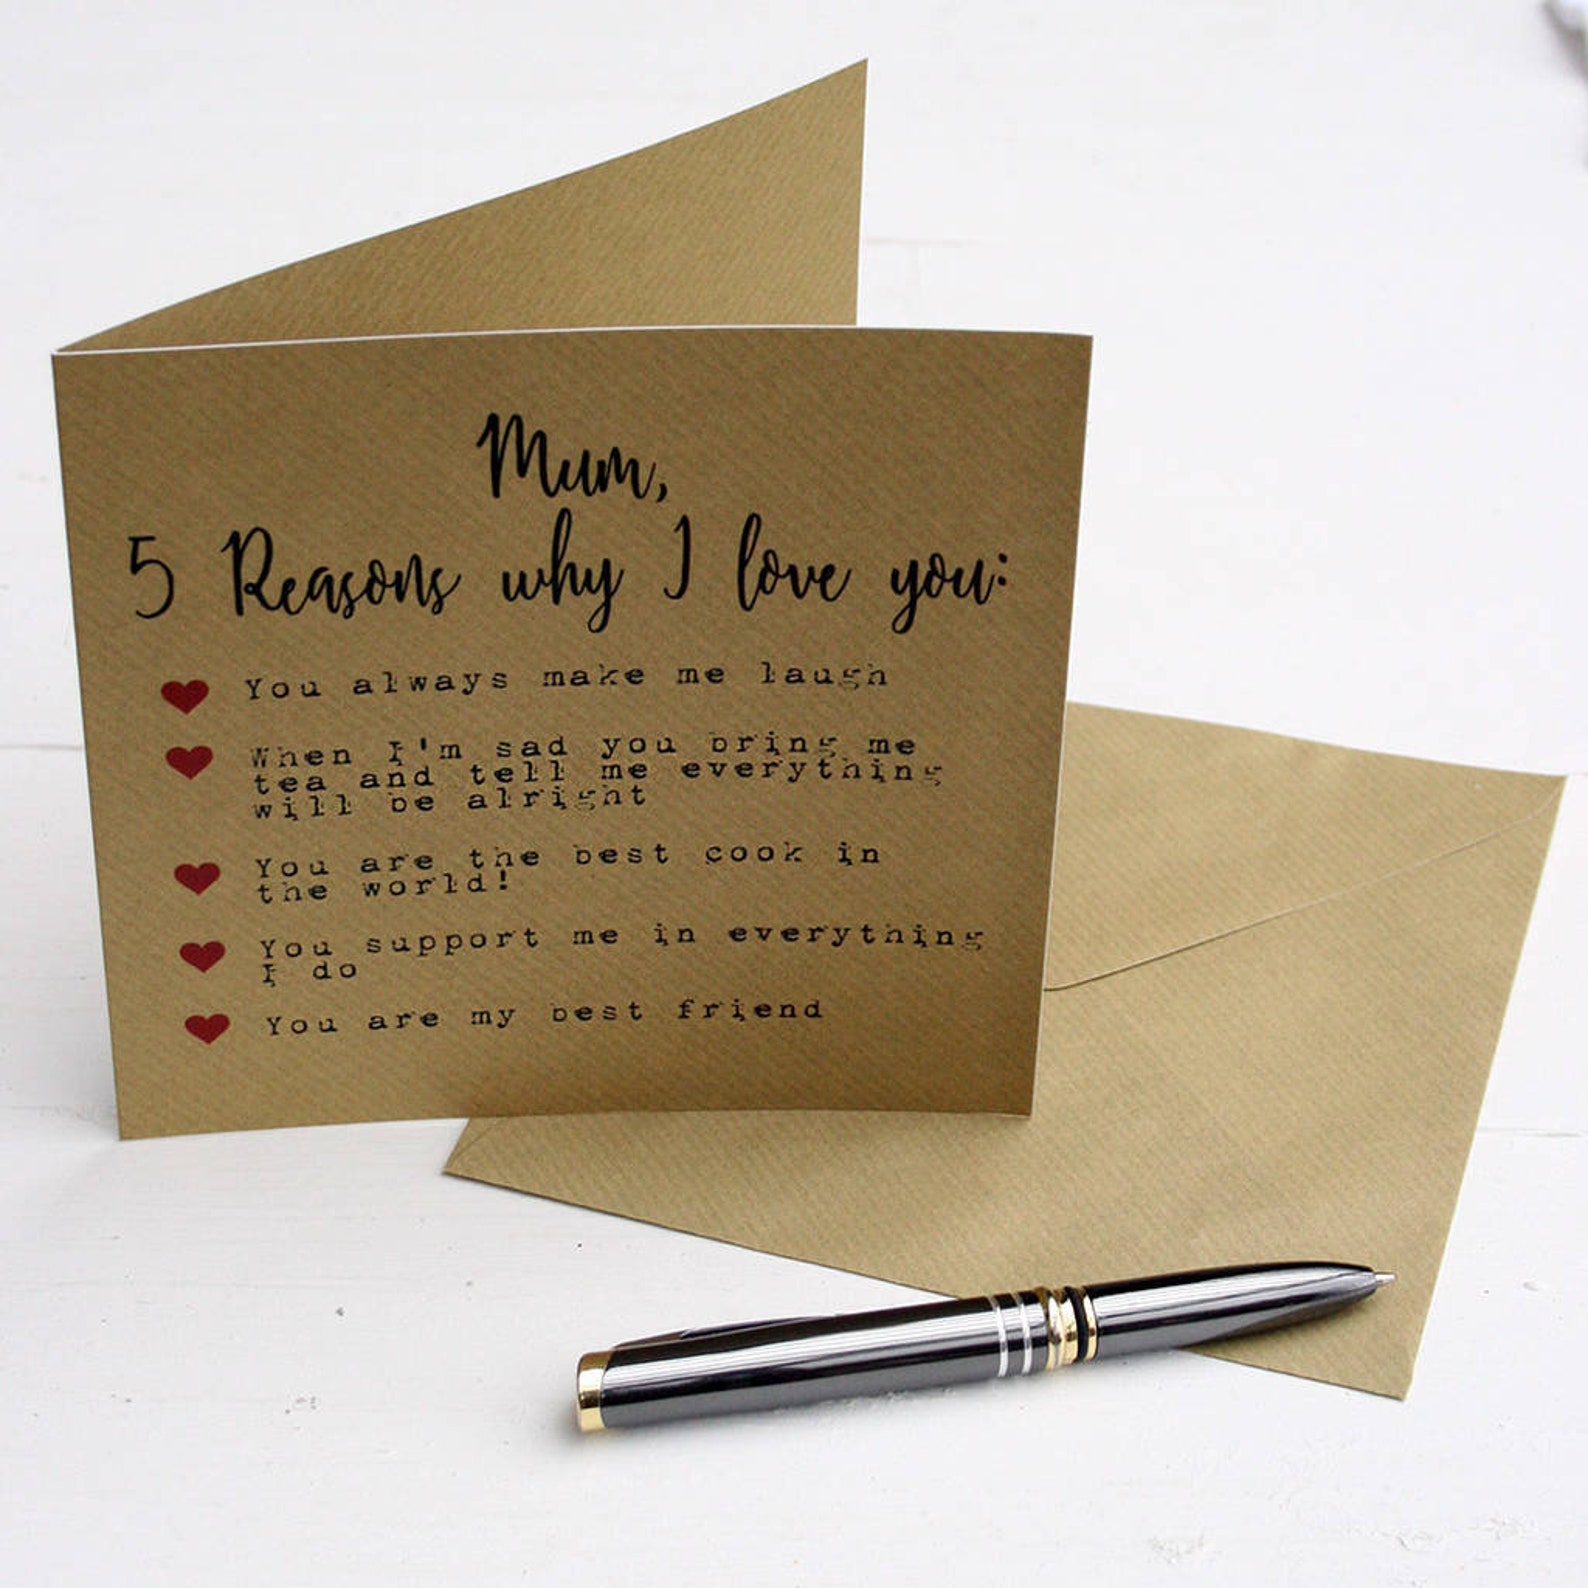 Mum,
5 Reasons why I love you:
You always make me laugh
When I'm sad you bring me
tea and tell me everything
will be alright
You are the best cook in
the world!
You support me in everything
I do
You are my best friend